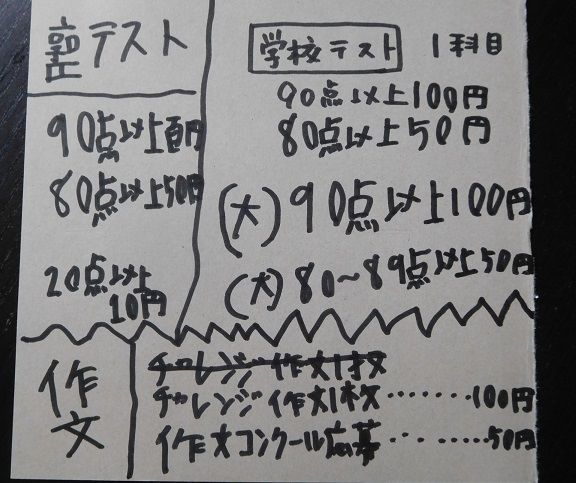 塾テスト
90点以上百円
80点以上50円
20点以上
10円
学校テスト 1科目
90点以上100円
80点以上50円
(大)90点以上100円
(大)80~89点以上50円
作文
チャレンジ作文1枚
チャレンジ作文1枚‥‥‥‥100円
作文コンクール応募‥‥‥‥50円